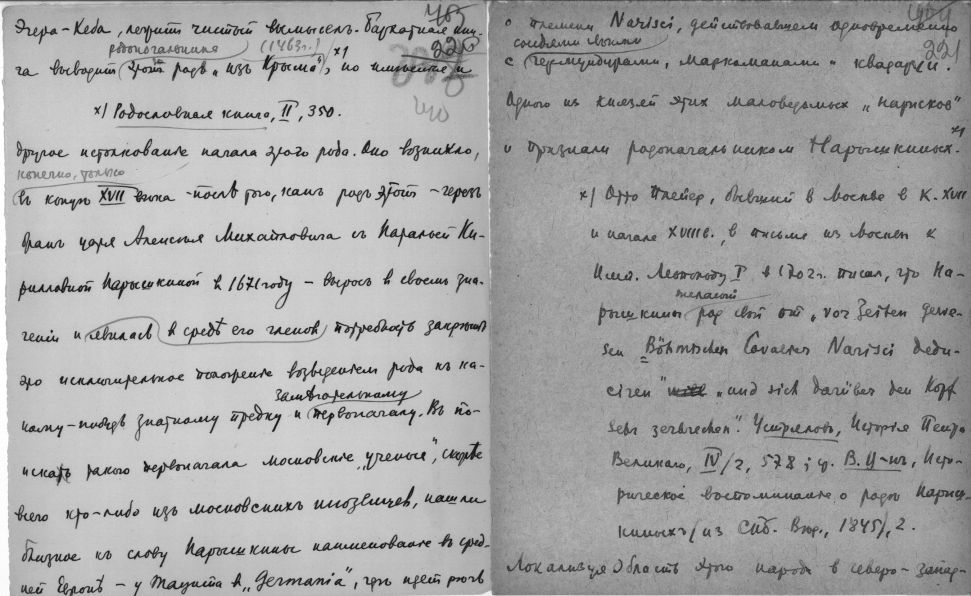 405
Эгера-Кеба, лежит чистый вымыселъ. Бархатная кни-
родоначальника (1463г.) x)
220
га выводит этотъ родъ "изъ Крыма", но имѣется и
440
x) Родословная книга, II, 350.
другое истолкованіе начала этого рода. Оно возникло,
конечно, только
въ концѣ XVII вѣка - послѣ того, какъ родъ этотъ - черезъ
бракъ царя Алексѣя Михайловича съ Натальей Ки-
рилловной Нарышкиной въ 1671 году - выросъ въ своемъ зна-
ченіи и явилась въ средѣ его членовъ потребность закрѣпить
это исключительное положеніе возведеніемъ рода къ ка-
замѣчательному
кому-нибудь знатному предку и первоначалу. Въ по-
искахъ такого первоначала московскіе "ученые", скорѣе
всего кто-либо изъ московскихъ иноземцевъ, нашли
близкое къ слову Нарышкины наименованіе въ сред-
ней Европѣ - у Тацита в "Germania", гдѣ идетъ рѣчь
о племени Narisci, действовавшем одновременно
221
соседями своими
с Гермундурами, маркоманами и квадами.
Одного из князей этих маловедомых "нарисков"
x)
и признали родоначальником Нарышкиных.
x) Отто Плейер, бывший в Москве в к. XVII
и начале XVIII в., в письме из Москвы к
Имп. Леопольду I в 1702 г. писал, что На-
желают
рышкины род свой от "vor Zeiten gewe-
sen Böhmischen Cavalers Narisci dedu-
ciren" "und sich darüber den Kopf
sehr zerbrechen". Устряловъ, Исторія Петра
Великаго, IV/2, 578; ср. В. И-нъ, Исто-
рическое воспоминаніе о родѣ Нарыш-
киныхъ /из Спб. Вѣд., 1845/, 2.
Локализуя область этого народа в северо-запад-